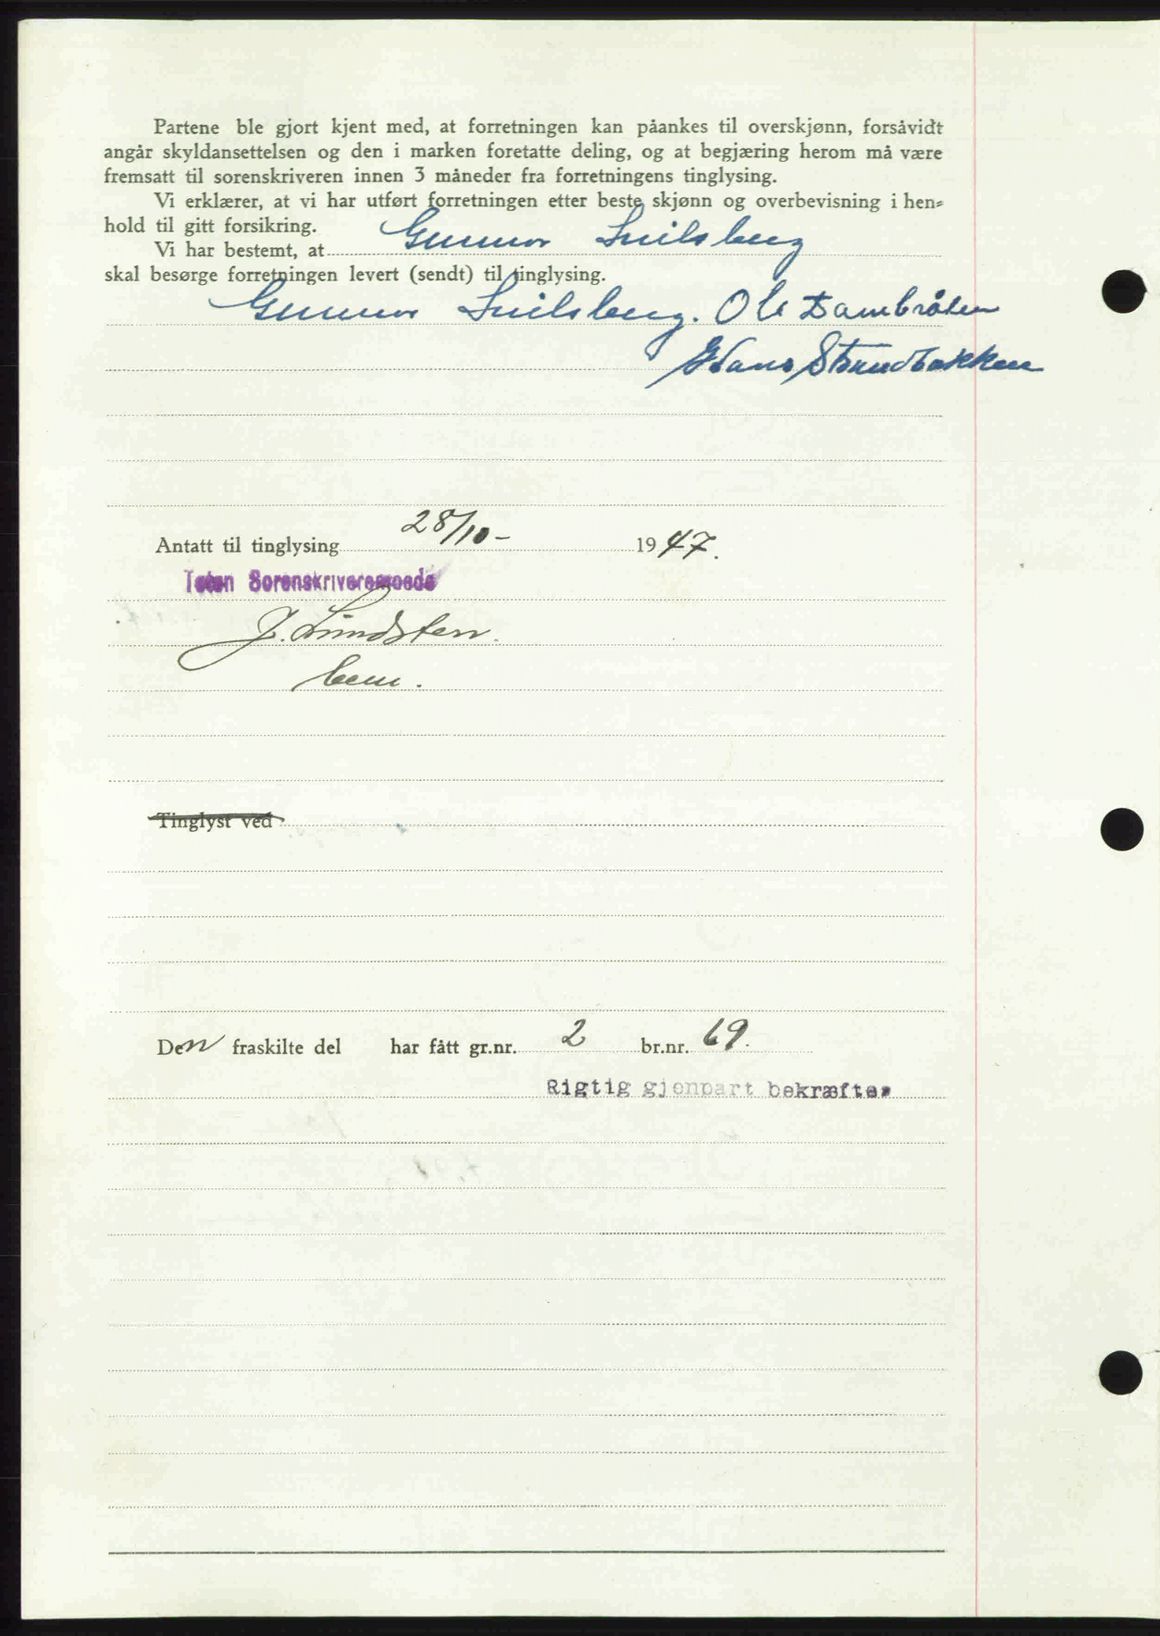 Partene ble gjort kjent med, at forretningen kan påankes til overskjønn, forsåvidt
angår skyldansettelsen og den i marken foretatte deling, og at begjæring herom må være
fremsatt til sorenskriveren innen 3 måneder fra forretningens tinglysing.
Vi erklærer, at vi har utført forretningen etter beste skjønn og overbevisning i hen=
hold til gitt forsikring.
Vi har bestemt, at Gunnar
skal besørge forretningen levert (sendt) til tinglysing.
Gunnar Ole Dambråten
Hans Strandbakken
Antatt til tinglysing 28/10- 1947.
Toten Sorenskriverembede
J. Lundsten.
Tinglyst ved
Den fraskilte del har fått gr.nr. 2 br.nr. 69.
Rigtig gjenpart bekræftes